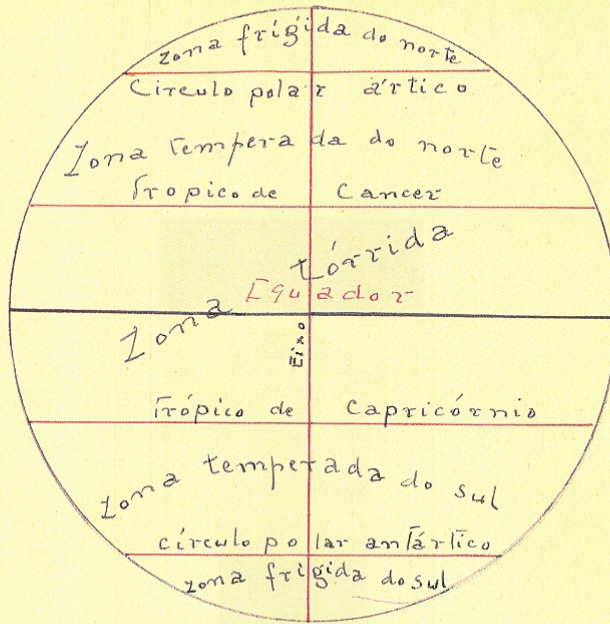 zona frígida do norte
Círculo polar ártico
Zona temperada do norte
Tropico de Cancer
Zona tórrida
Equador
Eixo
Trópico de Capricórnio
zona temperada do sul
círculo polar antártico
zona frigida do sul